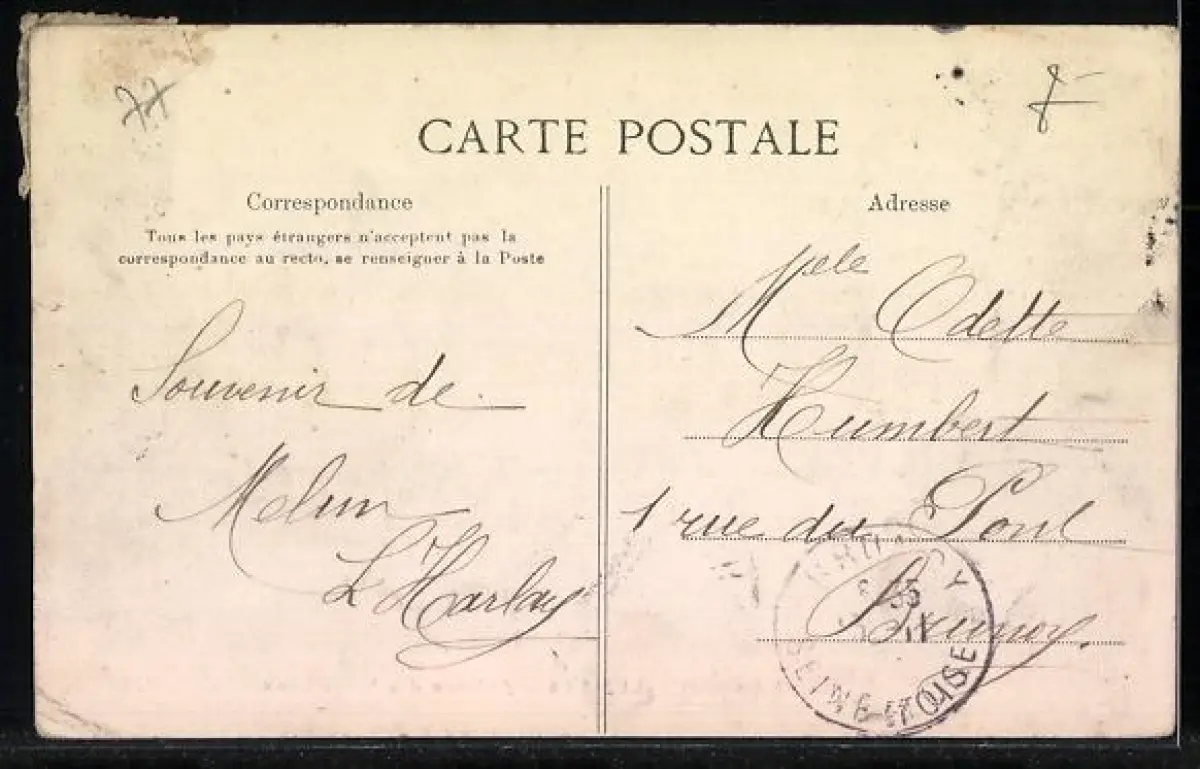 77
CARTE POSTALE
Correspondance
Tous les pays étrangers n'acceptent pas la
correspondance au recto, se renseigner à la Poste
Souvenir de
Melun
L Harlay
Adresse
Melle Odette
Humbert
1 rue du Pont
Brunoy
BRUNOY
SEINE-ET-OISE